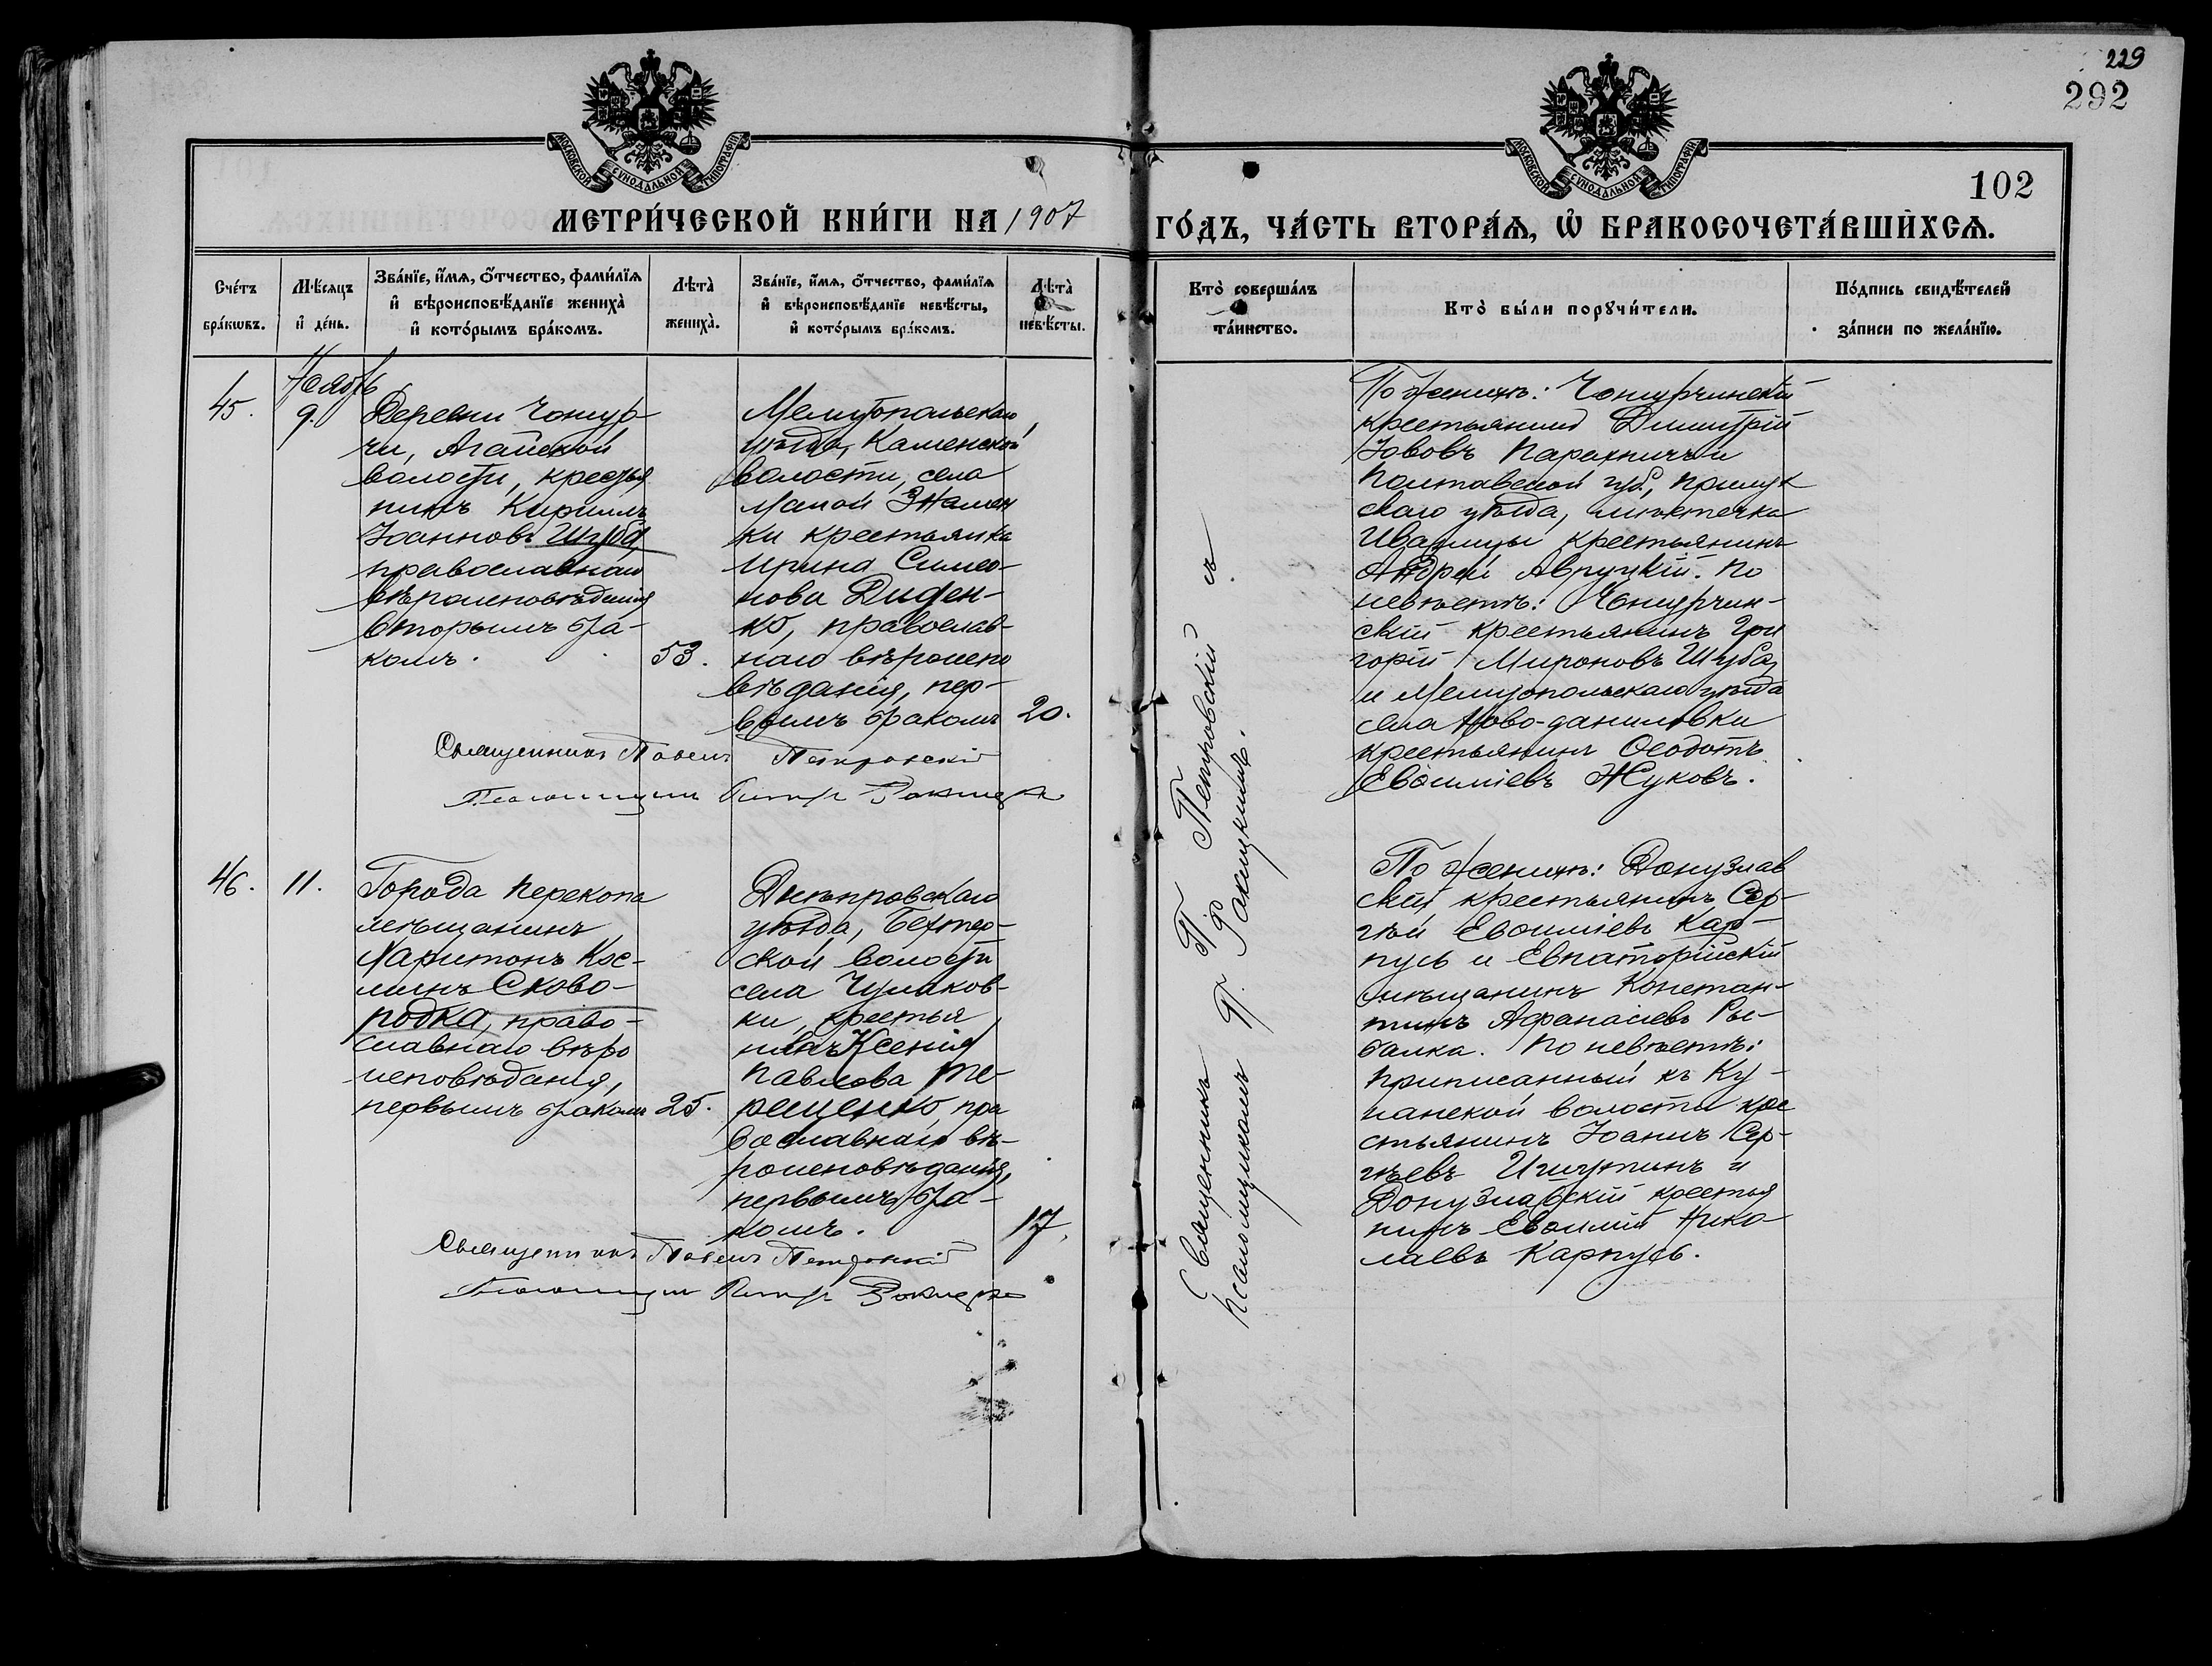 229
292
102
МОСКОВСКОЙ СѴНОДАЛЬНОЙ ТИПОГРАФІИ
МОСКОВСКОЙ СѴНОДАЛЬНОЙ ТИПОГРАФІИ
МЕТРИ́ЧЕСКОЙ КНИ́ГИ НА 1907
ГО́ДЪ, ЧА́СТЬ ВТОРА́Ѧ, Ѿ БРАКОСОЧЕТА́ВШИХСѦ.
Сче́тъ
бра́кѡвъ.
Мѣ́сяцъ
и де́нь.
Зва́нїе, и́мѧ, о́тчество, фами́лїѧ
и вѣроисповѣ́данїе жениха̀
и кото́рымъ бра́комъ.
Лѣта̀
жениха̀.
Зва́нїе, и́мѧ, о́тчество, фами́лїѧ
и вѣроисповѣ́данїе невѣ́сты,
и кото́рымъ бра́комъ.
Лѣта̀
невѣ́сты.
Кто̀ соверша́лъ
та́инство.
Кто̀ бы́ли порꙋчи́тели.
По́дпись свидѣ́телей
за́писи по жела́нїю.
Ноябрь
45.
9.
Деревни Чотур-
чи, Агайской
волости, крестья
нинъ Кириллъ
Іоанновъ Шуба,
православнаго
вѣроисповѣданія
вторымъ бра-
комъ.
53.
Мелитопольскаго
уѣзда, Каменской
волости, села
Малой Знамен
ки крестьянка
Ирина Симео-
нова Диден-
ко, православ-
наго вѣроиспо
вѣданія, пер-
вымъ бракомъ
20.
Священникъ Павелъ Петровскій
Псаломщикъ Петръ
По женихѣ: Чотурчинскій
крестьянинъ Димитрій
Іововъ и
Полтавской губ., Прилук
скаго уѣзда, мѣстечка
Иваницы крестьянинъ
Андрей Авруцкій. По
невѣстѣ: Чотурчин-
скій крестьянинъ Гри
горій Мироновъ Шуба,
и Мелитопольскаго уѣзда
села Ново-Даниловки
крестьянинъ Ѳеодотъ
Евѳиміевъ Жуковъ.
Священникъ П. Петровскій съ
псаломщикомъ П. Ракицкимъ.
46.
11.
Города Перекопа
мѣщанинъ
Харитонъ Кос-
минъ Сково-
родка, право-
славнаго вѣро
исповѣданія,
первымъ бракомъ
25.
Днѣпровскаго
уѣзда, Бехтер-
ской волости
села Чулаков-
ки, крестья
нка Ксенія
Павлова Те-
рещенко, пра
вославнаго вѣ-
роисповѣданія,
первымъ бра-
комъ.
17.
Священникъ Павелъ Петровскій
Псаломщикъ Петръ
По женихѣ: Донузлав
скій крестьянинъ Сер-
гѣй Евѳиміевъ Кар-
пусь и Евпаторійскій
мѣщанинъ Констан-
тинъ Аѳанасіевъ Ры-
балка. По невѣстѣ:
Приписанный къ Ку-
ланской волости кре
стьянинъ Іоаннъ Сер-
гѣевъ и
Донузлавскій крестья
нинъ Евѳимій Нико-
лаевъ Карпусь.